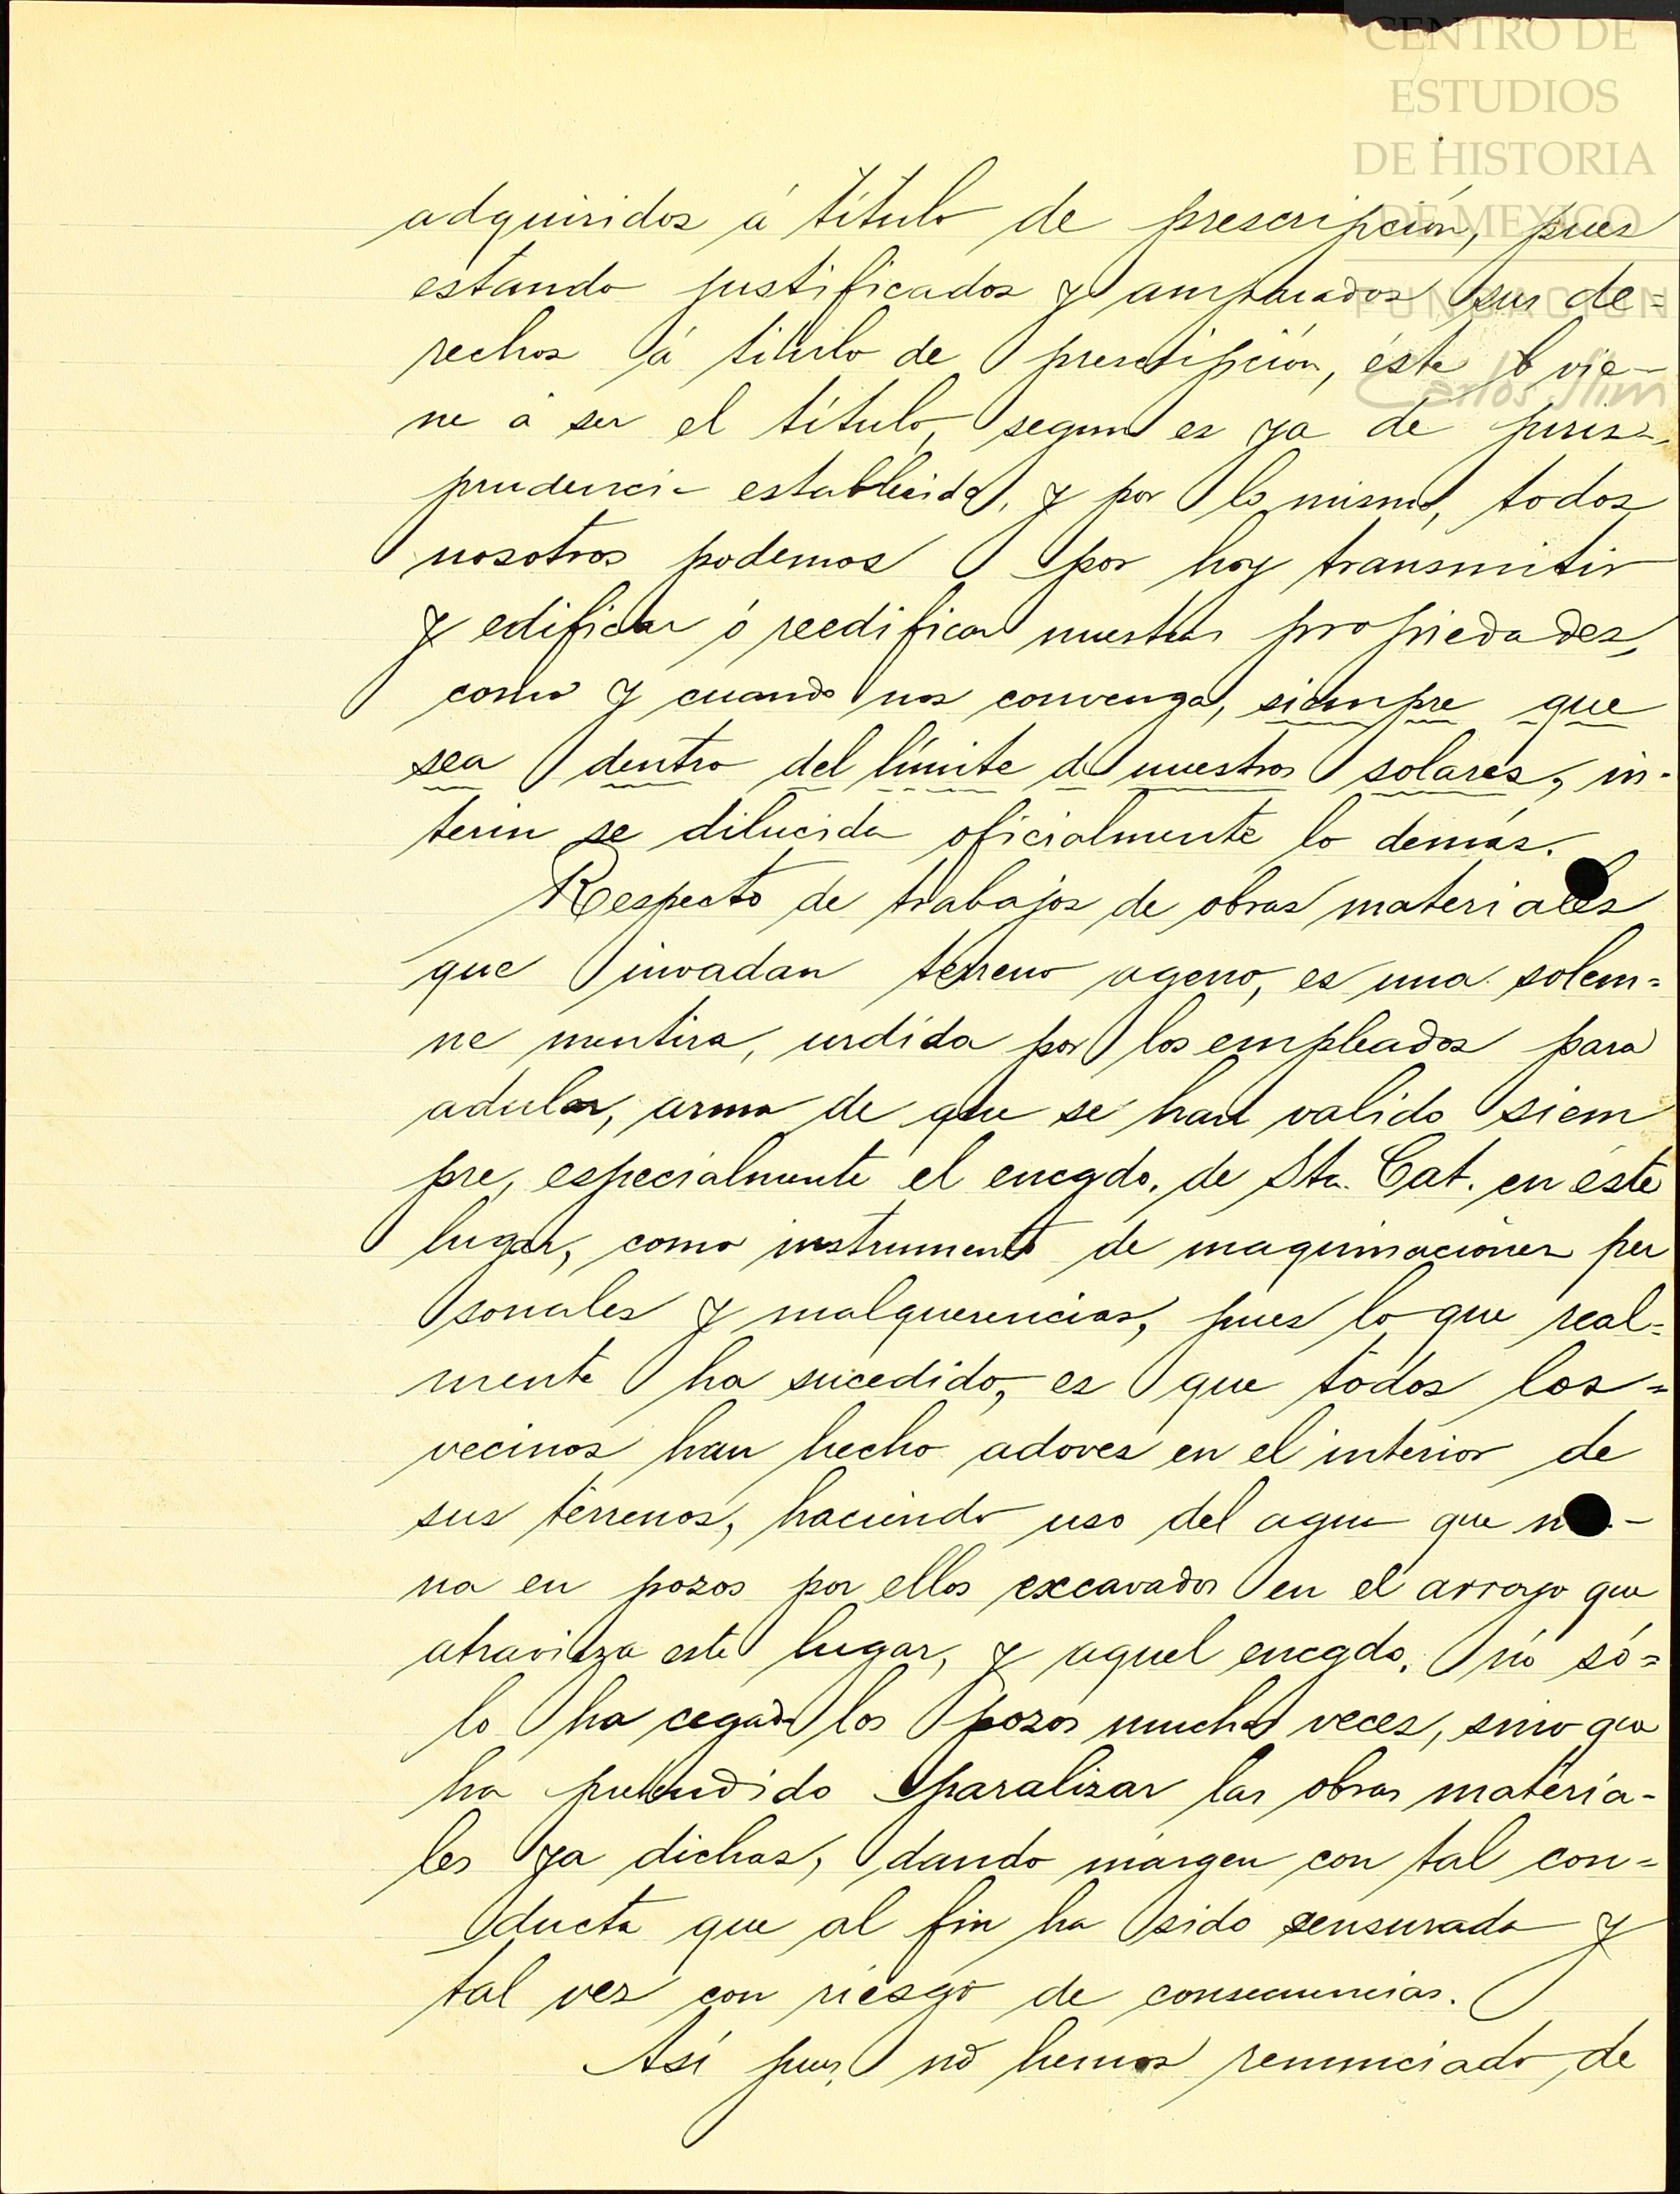 CENTRO DE
ESTUDIOS
DE HISTORIA
DE MEXICO
FUNDACION
Carlos Slim
adquiridos á título de prescripción, pues
estando justificados y amparados sus de=
rechos á título de prescripción, éste vie-
ne á ser el título, segun es ya de juris=
prudencia establecida, y por lo mismo, todos
nosotros podemos por hoy transmitir
y edificar ó reedificar nuestras propiedades,
como y cuando nos convenga, siempre que
sea dentro del límite de nuestros solares, in-
terin se dilucida oficialmente lo demás.
Respecto de trabajos de obras materiales
que invadan terreno ageno, es una solem=
ne mentira, urdida por los empleados para
adular, arma de que se han valido siem
pre, especialmente el encgdo. de Sta. Cat. en éste
lugar, como instrumento de maquinaciones per
sonales y malquerencias, pues lo que real=
mente ha sucedido, es que todos los=
vecinos han hecho adoves en el interior de
sus terrenos, haciendo uso del agua que
na en pozos por ellos excavados en el arroyo que
atravieza este lugar, y aquel encgdo. no só=
lo ha cegado los pozos muchas veces, sino que
ha pretendido paralizar las obras materia-
les ya dichas, dando márgen con tal con=
ducta que al fin ha sido sensurada y
tal vez con riesgo de consecuencias.
Así pues, no hemos renunciado, de